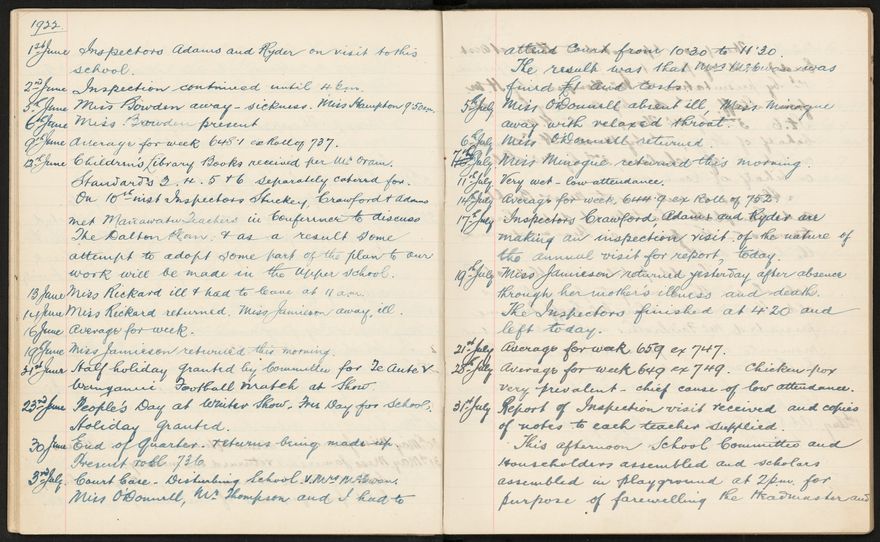 1922.
1st June Inspectors Adams and Ryder on visit to this
school.
2nd June Inspection continued until 4 p.m.
5th June Miss Bowden away - sickness. Miss Hampton 9.50am.
6th June Miss Bowden present
9th June Average for week 645.1 ex Roll of 737.
12th June Children's Library Books received per Mr Oram.
Standards 3. 4. 5 & 6 separately catered for.
On 10th inst Inspectors Stuckey, Crawford & Adams
met Manawatu Teachers in Conference to discuss
The Dalton Plan: & as a result some
attempt to adopt some part of the plan to our
work will be made in the Upper School.
13 June Miss Rickard ill & had to leave at 11 a.m.
14 June Miss Rickard returned. Miss Jamieson away, ill.
16 June Average for week.
19 June Miss Jamieson returned this morning.
21st June Half holiday granted by Committee for Te Aute v
Wanganui Football match at Show.
23rd June People's Day at Winter Show. Free Day for School.
Holiday granted.
30 June End of Quarter. Returns being made up
Present roll 736.
3rd July. Court Case - Disturbing School v. Mrs
Miss O'Donnell, Mr Thompson and I had to
attend Court from 10.20 to 11.20.
The result was that Mrs was
fined £1 and costs.
5th July Miss O'Donnell absent ill, Miss Minogue
away with relaxed throat.
6th July Miss O'Donnell returned.
7th July Miss Minogue returned this morning.
11th July Very wet - low attendance.
14th July Average for week 644.9 ex Roll of 752.
17th July Inspectors Crawford, Adams and Ryder are
making an inspection visit of the nature of
the annual visit for report, today.
19th July Miss Jamieson returned yesterday after absence
through her mother's illness and death.
The Inspectors finished at 4.20 and
left today.
21st July Average for week 659 ex 747.
28th July Average for week 649 ex 749. Chicken pox
very prevalent - chief cause of low attendance.
31st July Report of Inspection visit received and copies
of notes to each teacher supplied.
This afternoon School Committee and
Householders assembled and scholars
assembled in playground at 2 p.m. for
purpose of farewelling the Headmaster and